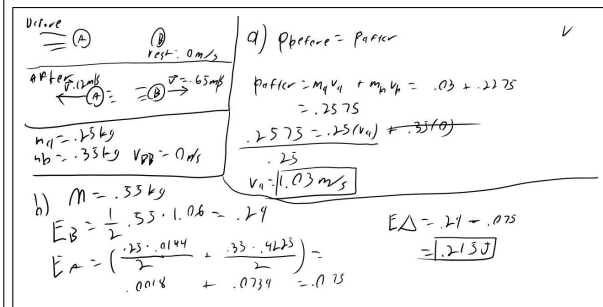 Before
A B
rest: 0m/s
After
v=.12m/s A B v=.65m/s
ma=.25kg
mb=.35kg VBB=0m/s
a) Pbefore = Pafter
V
Pafter = mava + mbvb = .03 + .2275
= .2575
.2575 = .25(va) + .35(0)
.25
va = 1.03 m/s
b) M = .35kg
EB = 1/2 .35 · 1.06 = .29
EΔ = .29 - .075
= .215J
EA = (.25 · .0144 / 2 + .35 · .4225 / 2) =
.0018 + .0739 = .075